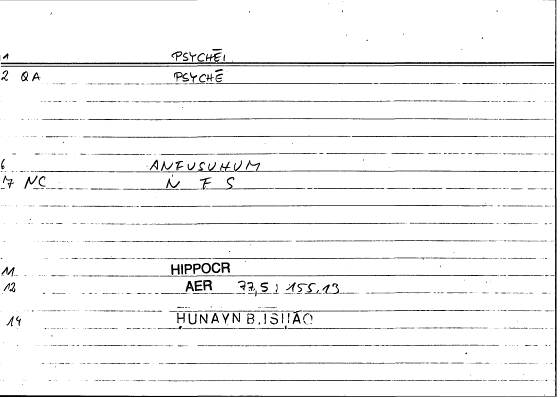 1 PSYCHĒI
2 QA PSYCHĒ
6 ANFUSUHUM
7 NC N F S
11 HIPPOCR
12 AER 77,5; 155,13
14 ḤUNAYN B.ISḤĀQ